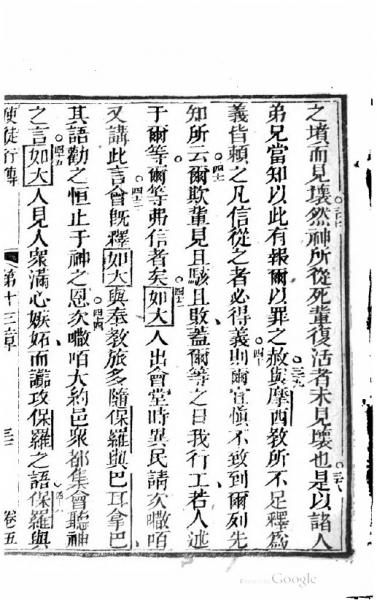 之墳而見壞然神所從死輩復活者未見壞也是以諸人
弟兄當知以此有報爾以罪之赦與摩西教所不足釋爲
義皆賴之凡信從之者必得義則爾宜愼不致到爾列先
知所云爾欺輩見且駭且敗蓋爾等之日我行工若人述
于爾等爾等弗信者矣如大人出會堂時異民請次嘥咟
又講此言會旣釋如大與奉教旅多隨保羅與巴耳拿巴
其語勸之恒止于神之恩次嘥咟大約邑衆都集會聽神
之言如大人見人衆滿心嫉妬而讟攻保羅之語保羅與
使徒行傳
第十三章
卷五
三七
三八
三九
四十
四一
四二
四三
四四
四五
Google